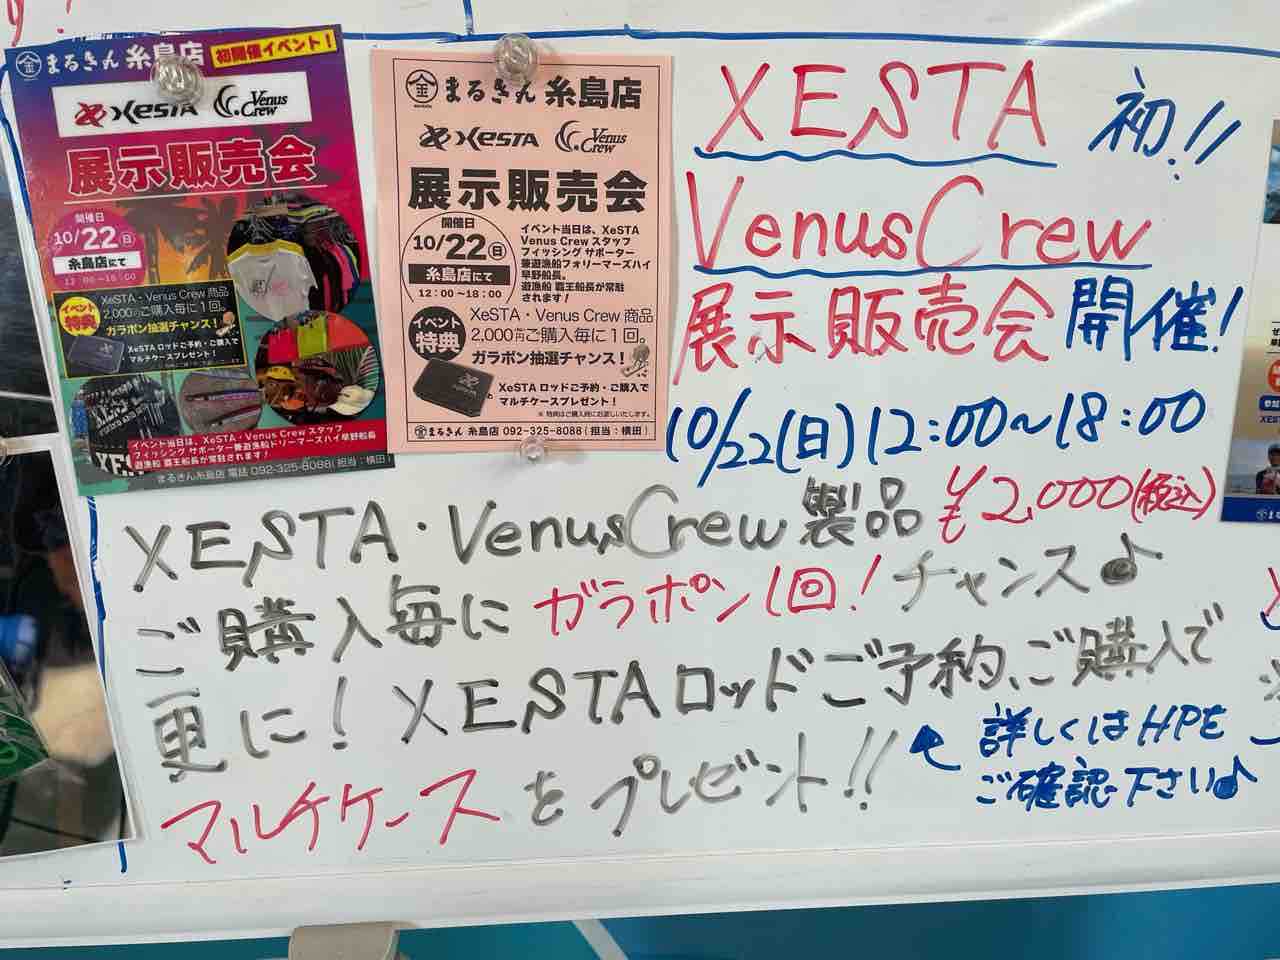 まるきん 糸島店
初開催イベント！
XeSTA
Venus Crew
展示販売会
開催日
10/22(日)
糸島店にて
12：00〜18：00
イベント特典
XeSTA・Venus Crew 商品
2,000円ご購入毎に1回。
ガラポン抽選チャンス！
XeSTA ロッドご予約・ご購入で
マルチケースプレゼント！
イベント当日は、XeSTA・Venus Crew スタッフ
フィッシング サポーター兼遊漁船ドリーマーズハイ早野船長
遊漁船 覇王船長が常駐されます！
まるきん糸島店 電話 092-325-8088(担当：横田)
まるきん 糸島店
XeSTA
Venus Crew
展示販売会
開催日
10/22(日)
糸島店にて
12：00〜18：00
イベント当日は、XeSTA
Venus Crew スタッフ
フィッシング サポーター
兼遊漁船フォリーマーズハイ
早野船長。
遊漁船 覇王船長が常駐
されます！
イベント特典
XeSTA・Venus Crew 商品
2,000円ご購入毎に1回。
ガラポン抽選チャンス！
XeSTA ロッドご予約・ご購入で
マルチケースプレゼント！
※ 特典はご購入時にお渡しいたします。
まるきん 糸島店 092-325-8088 (担当：横田)
XESTA 初!!
VenusCrew
展示販売会 開催!
10/22(日)12:00〜18:00
XESTA・VenusCrew製品 ¥2,000(税込)
ご購入毎にガラポン1回!チャンス♪
更に! XESTAロッドご予約、ご購入で
マルチケースをプレゼント!!
詳しくはHPを
ご確認下さい♪